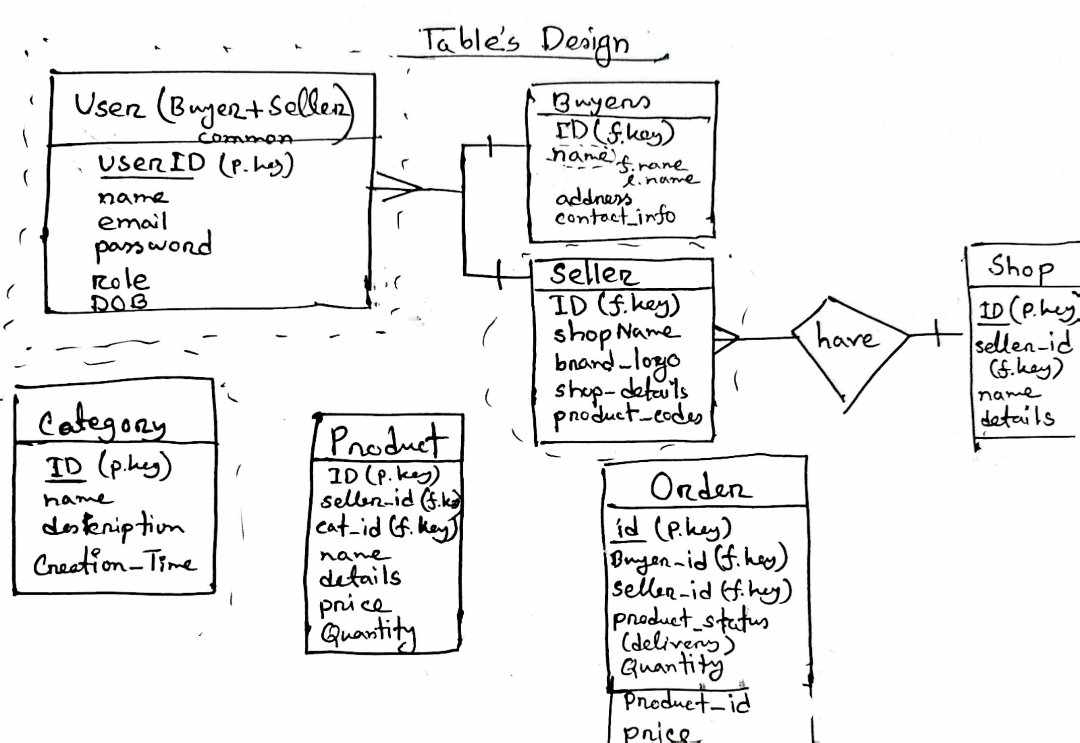 Table's Design
User (Buyer+Seller)
common
userID (p.key)
name
email
password
role
DOB
Buyers
ID (f.key)
name f.name
l.name
address
contact_info
Seller
ID (f.key)
shopName
brand_logo
shop_details
product_codes
have
Shop
ID (p.key)
seller_id
(f.key)
name
details
Category
ID (p.key)
name
description
Creation_Time
Product
ID (p.key)
seller_id (f.key)
cat_id (f.key)
name
details
price
Quantity
Order
id (p.key)
Buyer_id (f.key)
seller_id (f.key)
product_status
(delivery)
Quantity
Product_id
price